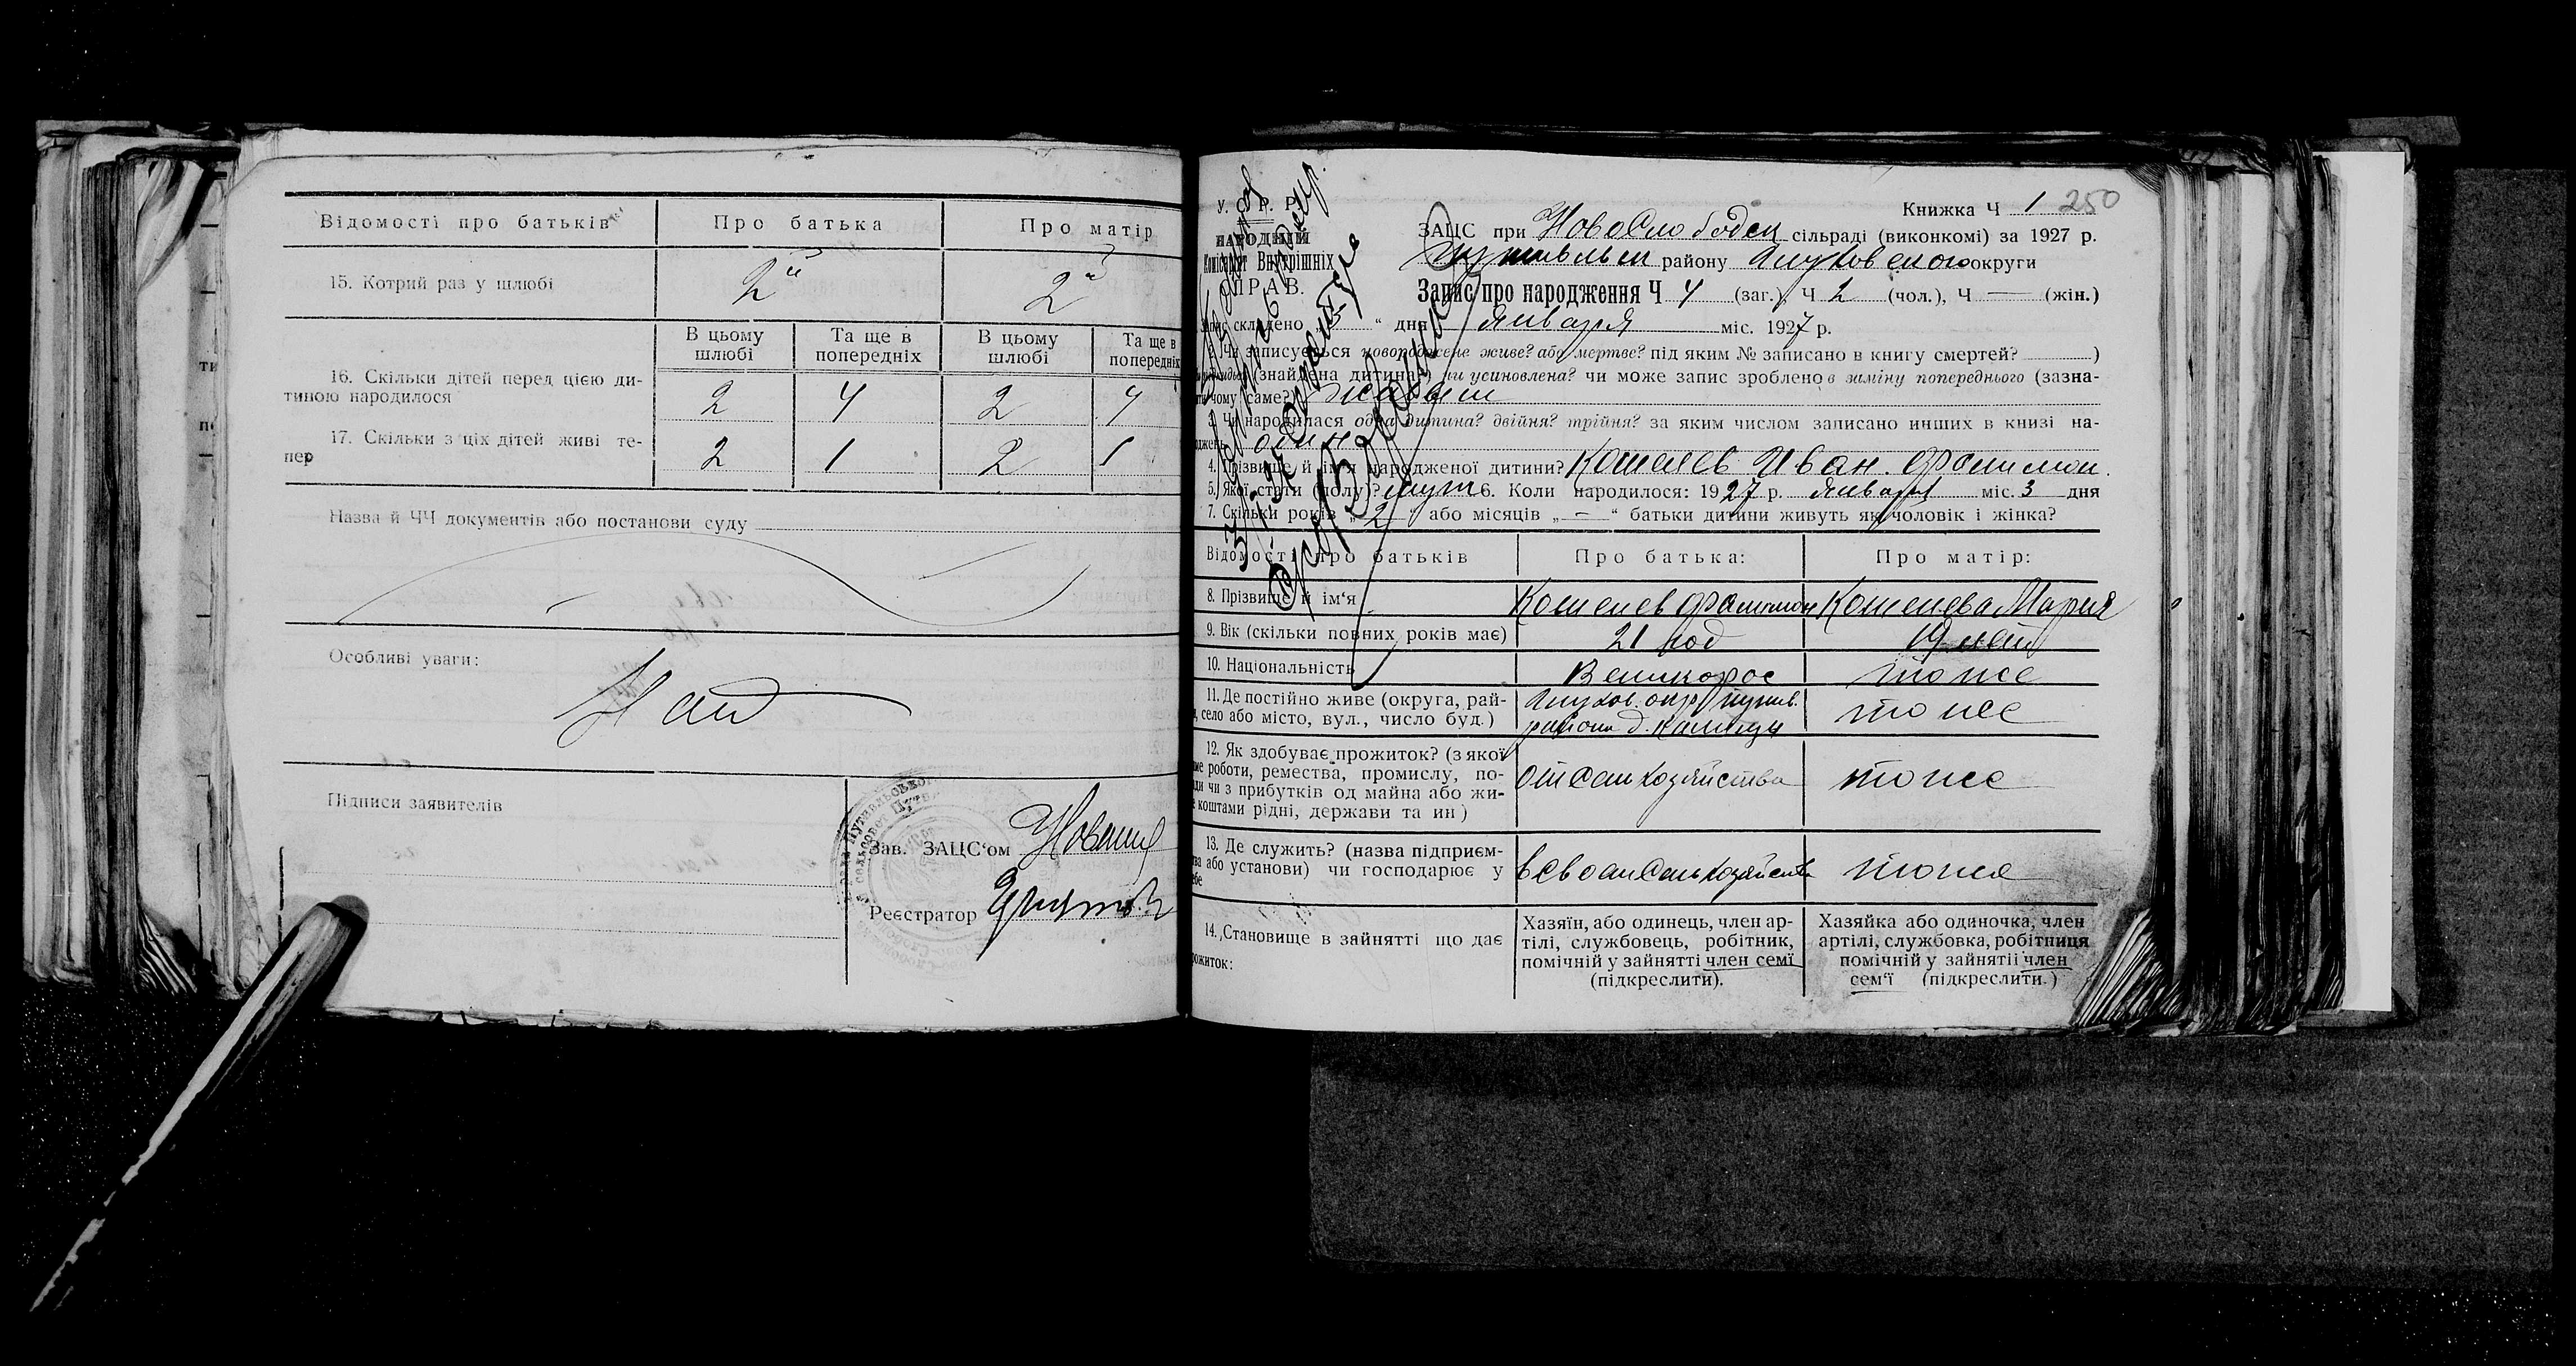 Відомості про батьків Про батька Про матір
15. Котрий раз у шлюбі 2й 2й
В цьому шлюбі Та ще в попередніх В цьому шлюбі Та ще в попередніх
16. Скільки дітей перед цією ди-
тиною народилося 2 4 2 4
17. Скільки з ціх дітей живі те-
пер 2 1 2 1
Назва й ЧЧ документів або постанови суду
Особливі уваги:
Підписи заявителів
Зав. ЗАЦС‘ом
Реєстратор
Книжка Ч 1 250
У. С. Р. Р.
НАРОДНІЙ
Комісаріят Внутрішніх
СПРАВ.
ЗАЦС при НовоСлободск сільраді (виконкомі) за 1927 р.
Путивльск району Глуховского округи
Запис про народження Ч 4 (заг.), Ч 2 (чол.), Ч — (жін.)
складено „ 3 “ дня Января міс. 1927 р.
Чи записується новороджене живе? або мертве? під яким № записано в книгу смертей? )
(знайдена дитина) чи усиновлена? чи може запис зроблено в заміну попереднього (зазна-
чому саме?)
3. Чи народилася одна дитина? двійня? трійня? за яким числом записано инших в книзі на-
один
4. Прізвище й ім‘я народженої дитини? Кошелев Иван Филимон.
5. Якої стати (полу)? муж 6. Коли народилося: 1927 р. Января міс. 3 дня
7. Скільки років „ 2 “ або місяців „ — “ батьки дитини живуть як чоловік і жінка?
Відомості про батьків Про батька: Про матір:
8. Прізвище й ім‘я Кошелев Филимон Кошелева Мария
9. Вік (скільки повних років має) 21 год 19 лет
10. Національність Великорос тоже
11. Де постійно живе (округа, рай-
село або місто, вул., число буд.) Глухов. окр. Путив.
района д. тоже
12. Як здобуває прожиток? (з якої
роботи, ремества, промислу, по-
чи з прибутків од майна або жи-
коштами рідні, держави та ин) От Сель хозяйства тоже
13. Де служить? (назва підприєм-
або установи) чи господарює у в Своем Сельхозяйстве тоже
14. Становище в зайнятті що дає
Хазяїн, або одинець, член ар-
тілі, службовець, робітник,
помічній у зайнятті член семї
(підкреслити).
Хазяйка або одиночка, член
артілі, службовка, робітниця
помічній у зайнятіі член
сем‘ї (підкреслити.)